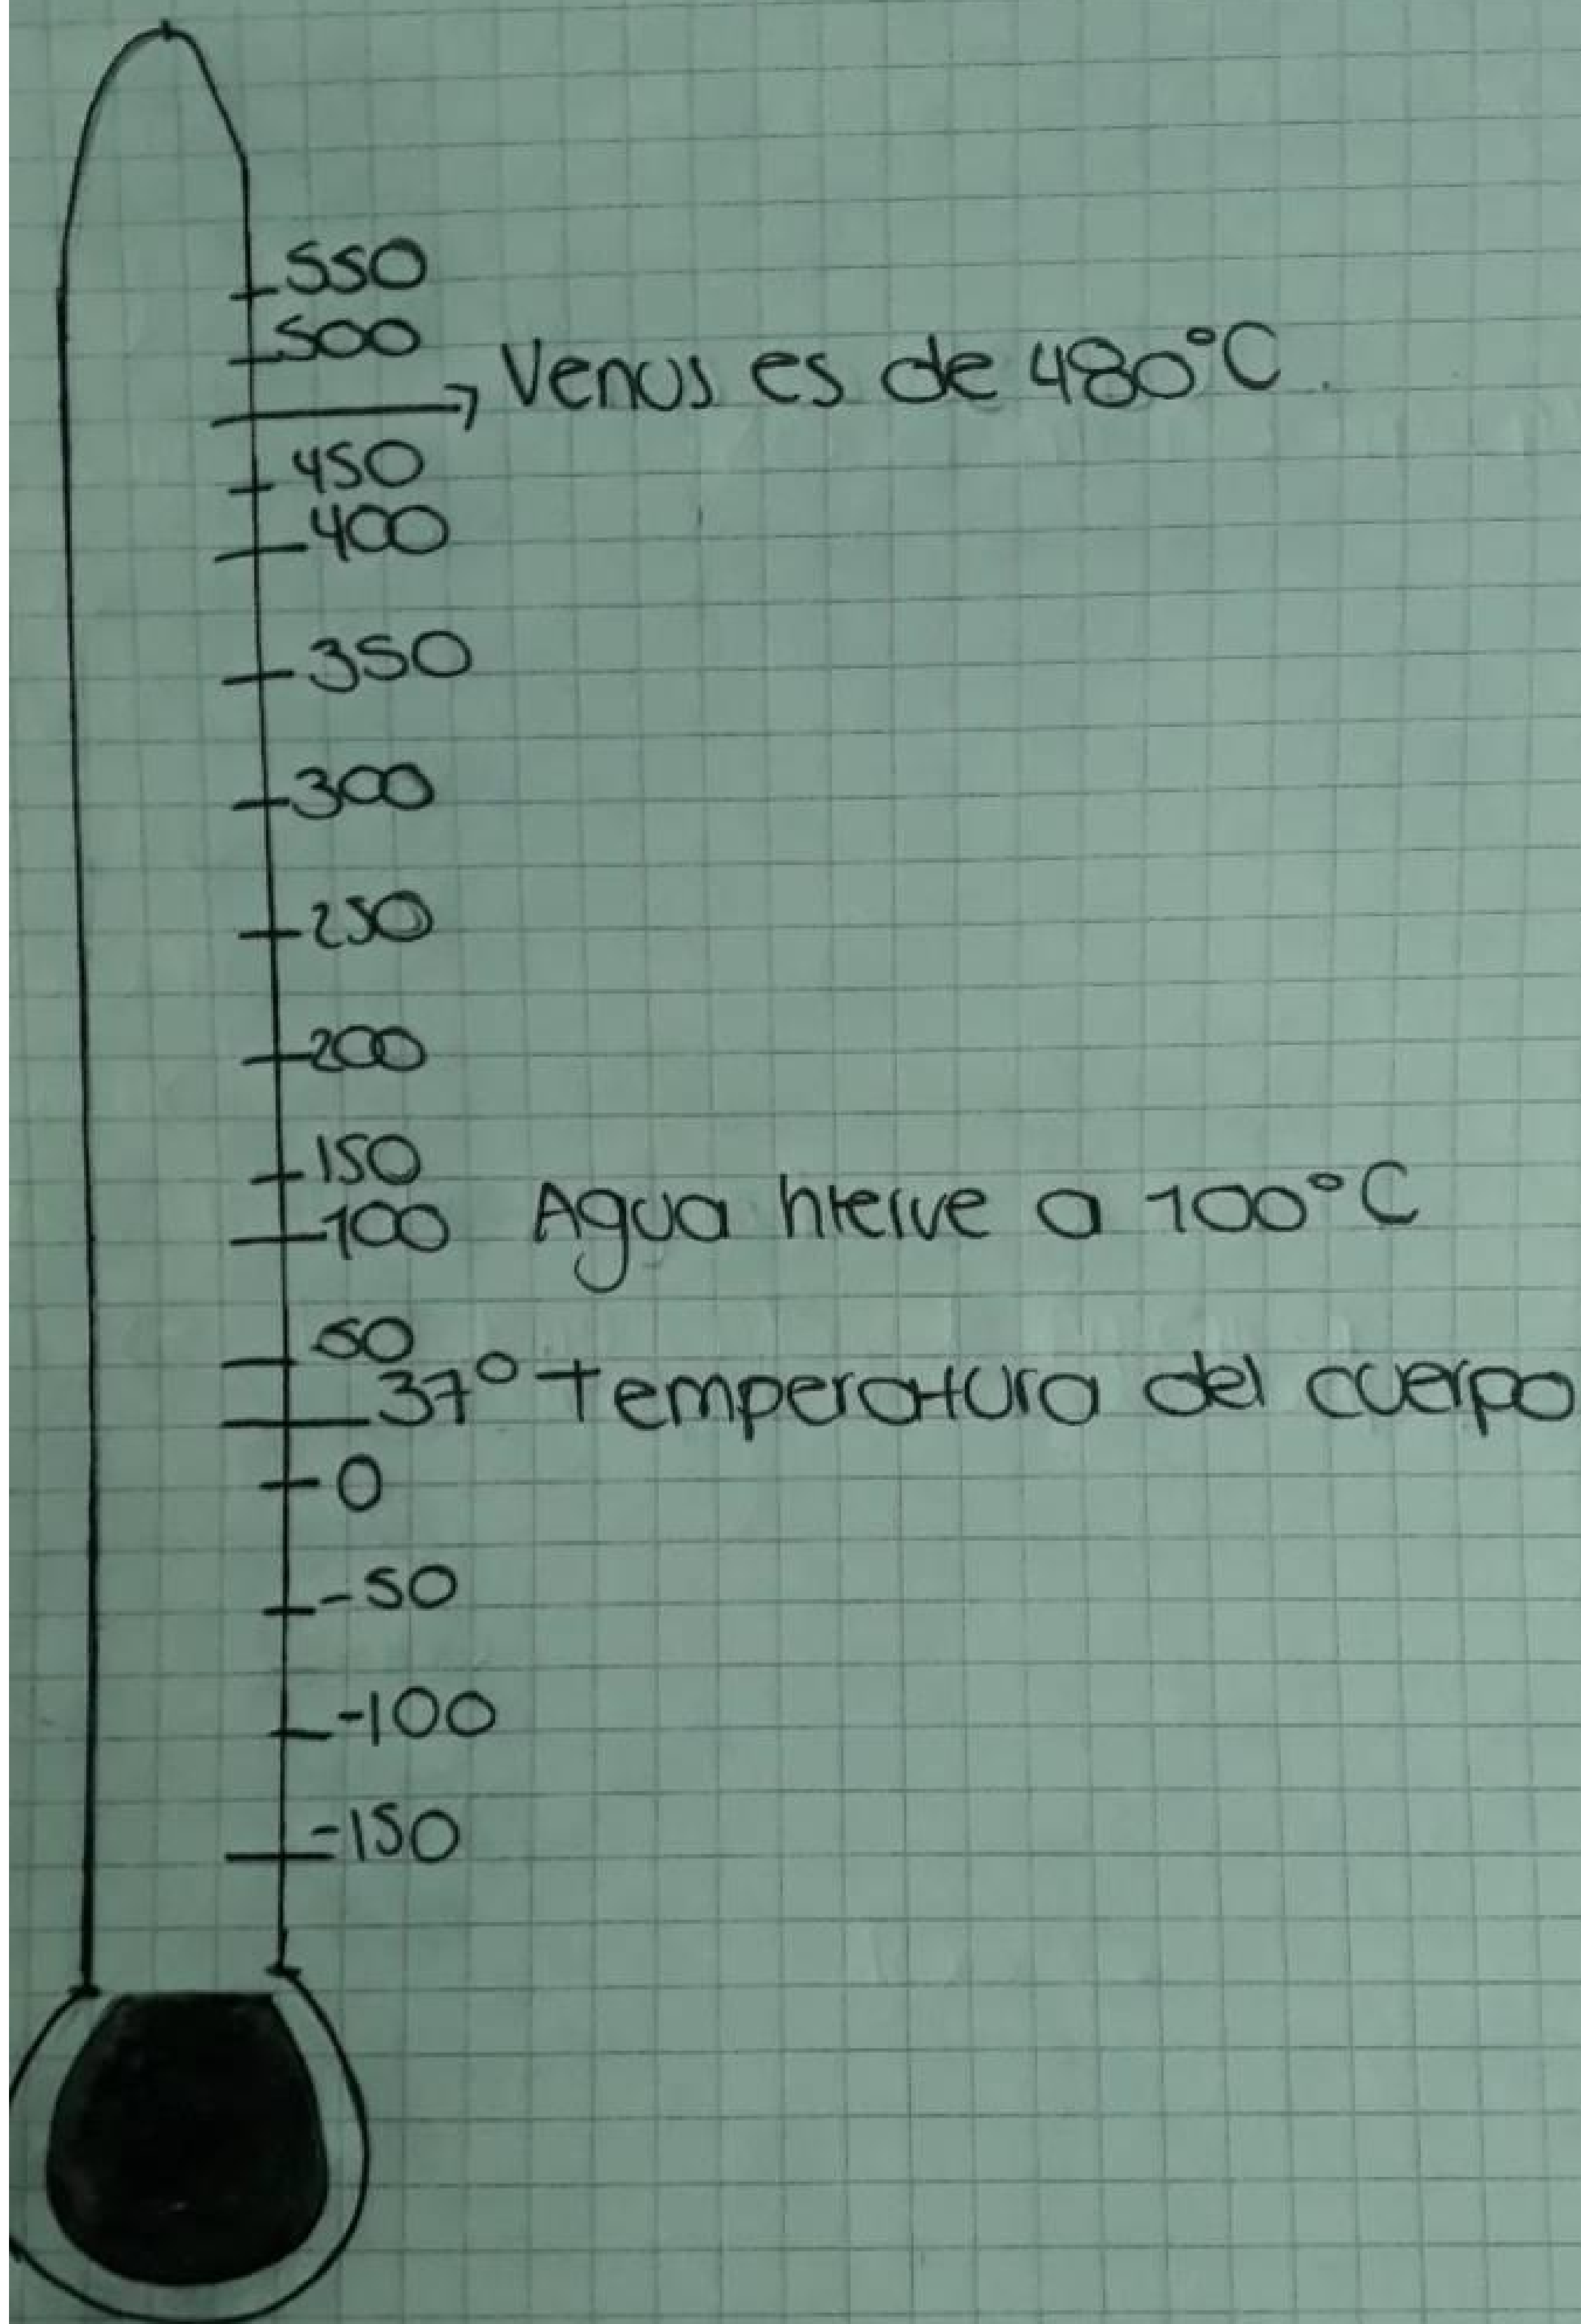 550
500
Venus es de 480°C.
450
400
350
300
250
200
150
100 Agua hierve a 100°C
50
37° temperatura del cuerpo
0
-50
-100
-150